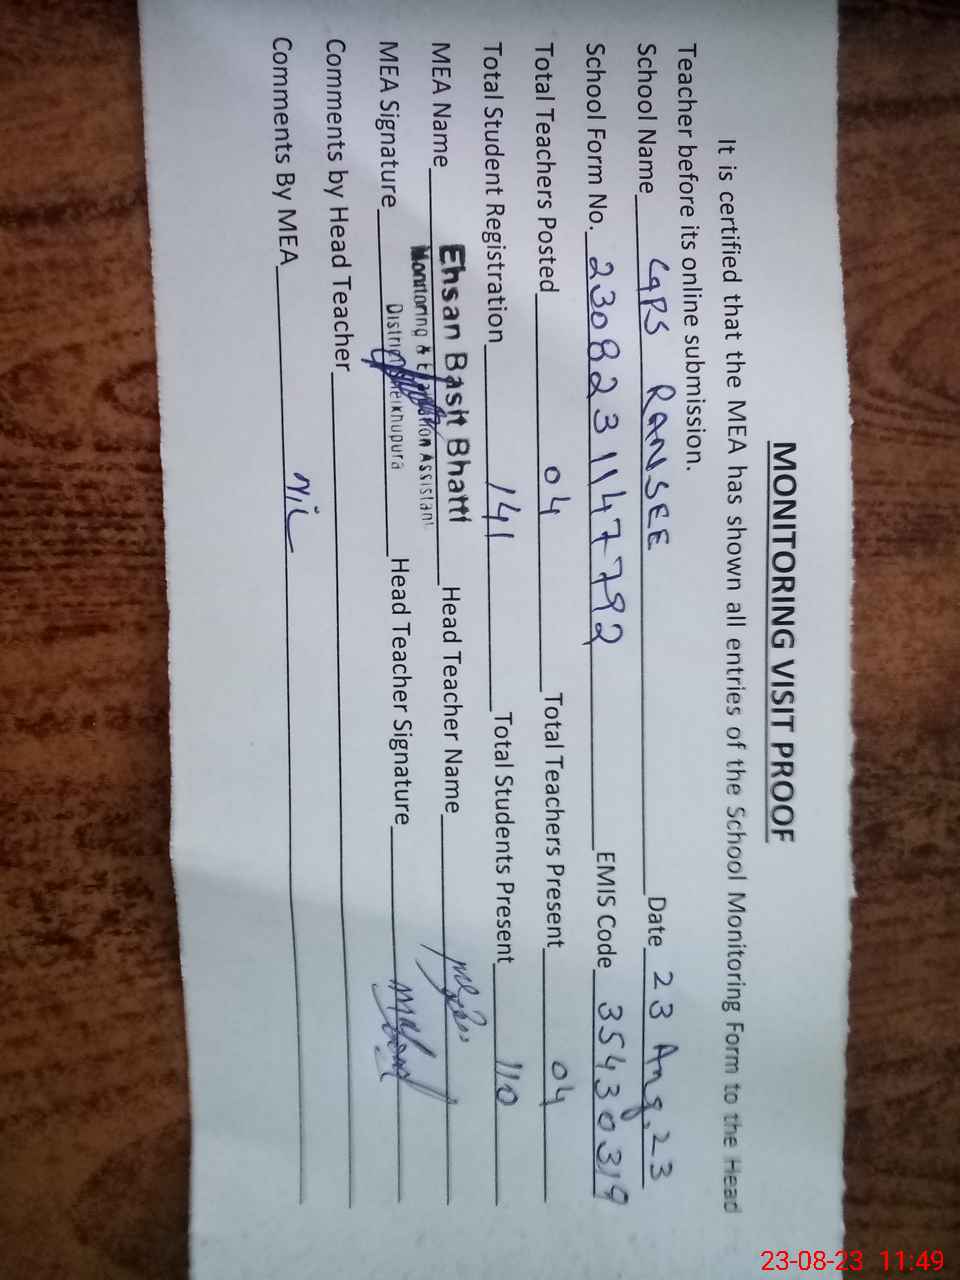 MONITORING VISIT PROOF
It is certified that the MEA has shown all entries of the School Monitoring Form to the Head
Teacher before its online submission.
School Name GGPS RANSEE Date 23 Aug, 23
School Form No. 2308231147792 EMIS Code 35430319
Total Teachers Posted 04 Total Teachers Present 04
Total Student Registration 141 Total Students Present 110
MEA Name Ehsan Basit Bhatti Head Teacher Name
Monitoring & Evaluation Assistant
MEA Signature District Sheikhupura Head Teacher Signature
Comments by Head Teacher
Comments By MEA Nil
23-08-23 11:49